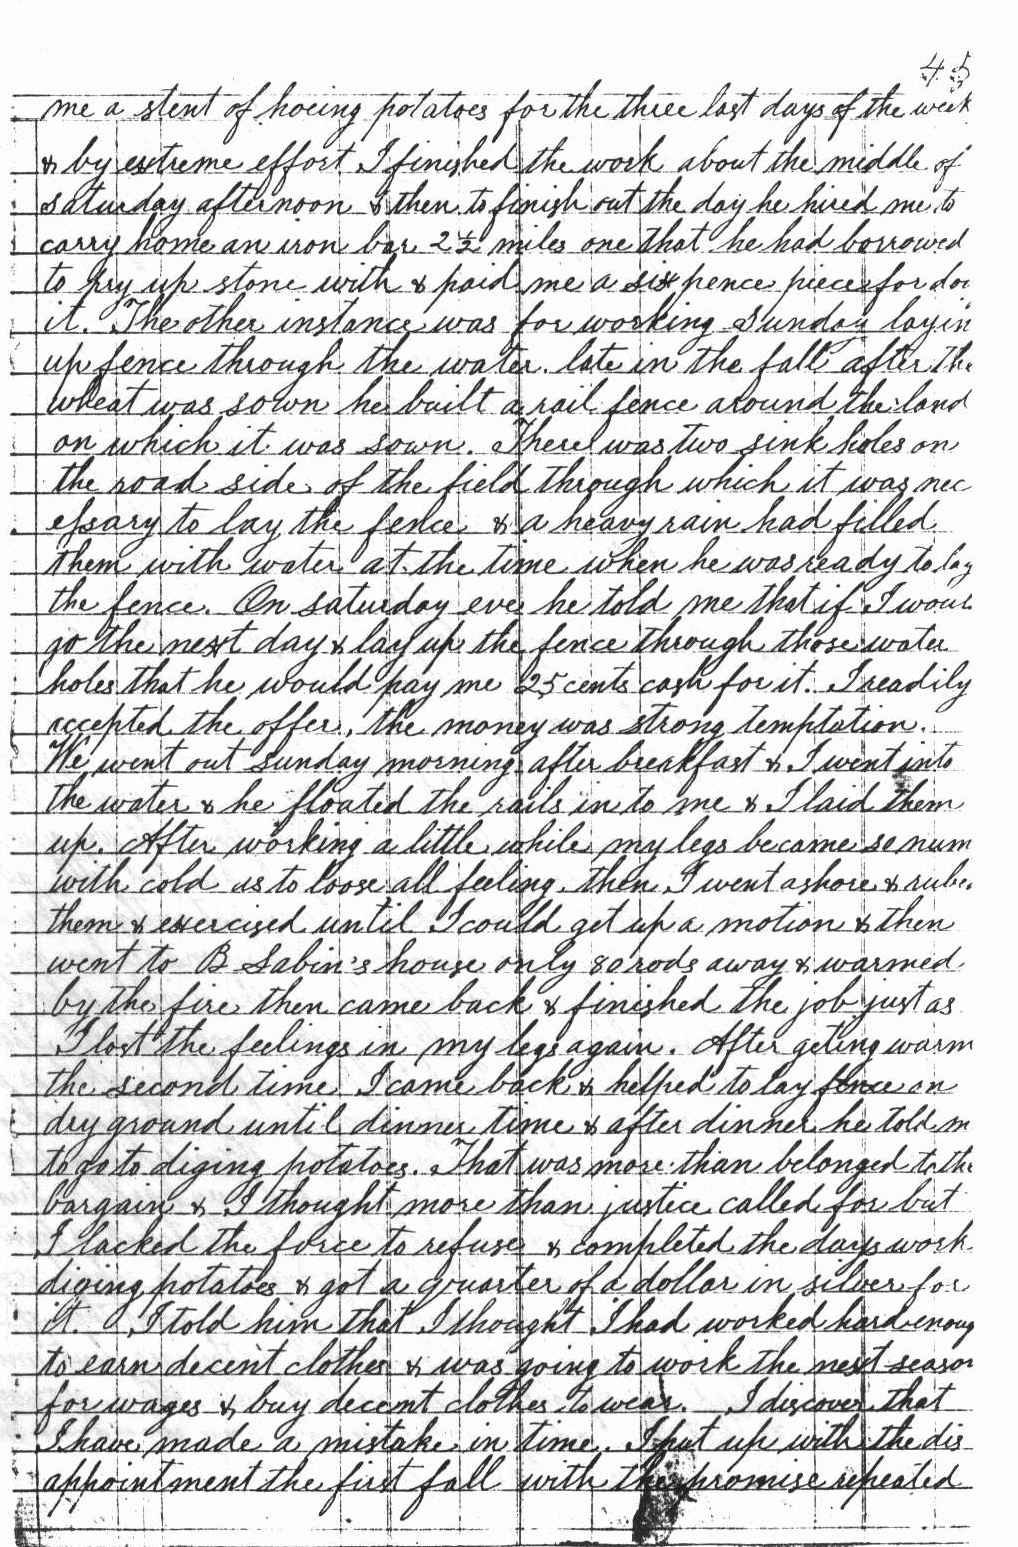 45
me a stent of hoeing potatoes for the three last days of the week
& by extreme effort I finished the work about the middle of
saturday afternoon & then to finish out the day he hired me to
carry home an iron bar 2½ miles one that he had borrowed
to pry up stone with & paid me a six pence piece for doi
it. The other instance was for working Sunday layin
up fence through the water late in the fall after the
wheat was sown he built a rail fence around the land
on which it was sown. There was two sink holes on
the road side of the field through which it was nec
essary to lay the fence & a heavy rain had filled
them with water at the time when he was ready to lay
the fence. On saturday eve he told me that if I woul
go the next day & lay up the fence through those water
holes that he would pay me 25 cents cash for it. I readily
accepted the offer, the money was strong temptation.
We went out sunday morning after breakfast & I went into
the water & he floated the rails in to me & I laid them
up. After working a little while my legs became so num
with cold as to loose all feeling then I went ashore & rube
them & exercised until I could get up a motion & then
went to B Sabin's house only 80 rods away & warmed
by the fire then came back & finished the job just as
I lost the feelings in my legs again. After geting warm
the second time I came back & helped to lay fence on
dry ground until dinner time & after dinner he told m
to go to diging potatoes. That was more than belonged to the
bargain & I thought more than justice called for but
I lacked the force to refuse & completed the days work
diging potatoes & got a quarter of a dollar in silver for
it. I told him that I thought I had worked hard enoug
to earn decent clothes & was going to work the next season
for wages & buy decent clothes to wear. I discover that
I have made a mistake in time. I put up with the dis
appointment the first fall with the promise repeated